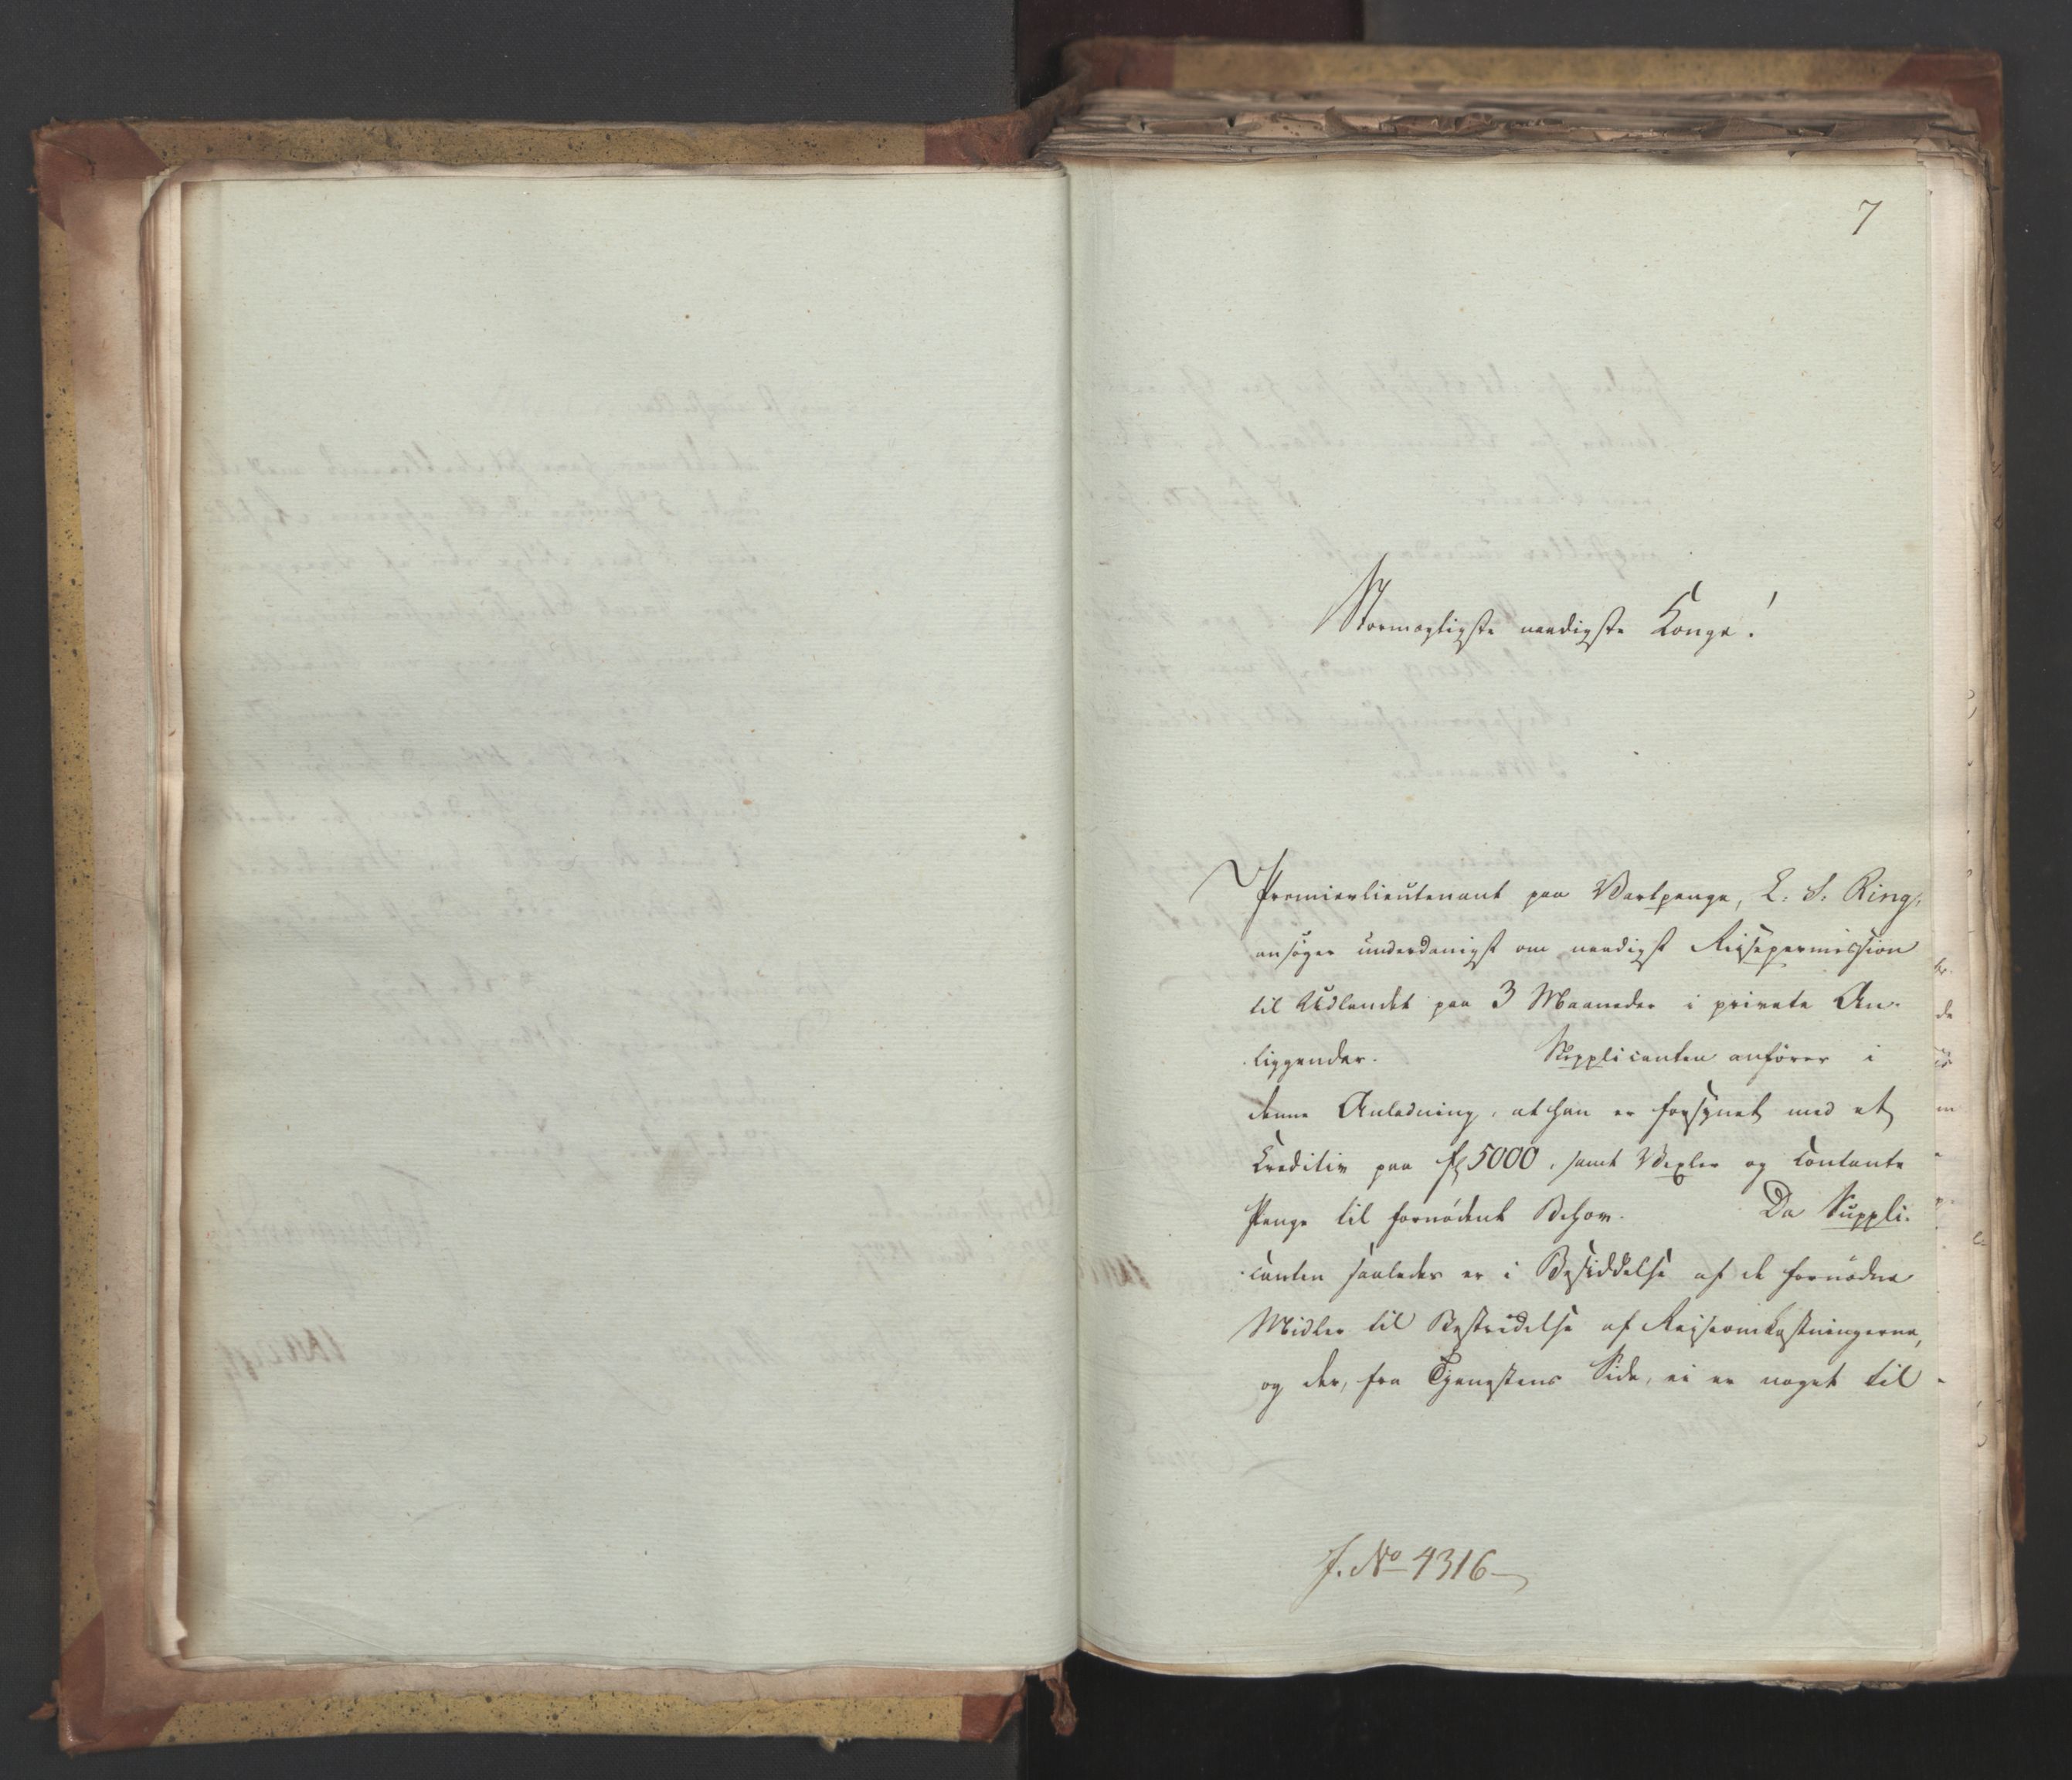 7
Stormægtigste naadigste Konge!
Premierlieutenant paa Vartpenge, L. S. Ring,
ansøger underdanigst om naadigst Reisepermission
til Udlandet paa 3 Maaneder i private An-
liggender. Supplicanten anfører i
denne Anledning, at han er forsynet med et
Creditiv paa f 5000, samt Vexler og contante
Penge til fornødent Behov. Da Suppli-
canten saaledes er i Besiddelse af de fornødne
Midler til Bestridelse af Reiseomkostningerne,
og der, fra Tjenestens Side, ei er noget til
J. No 4316